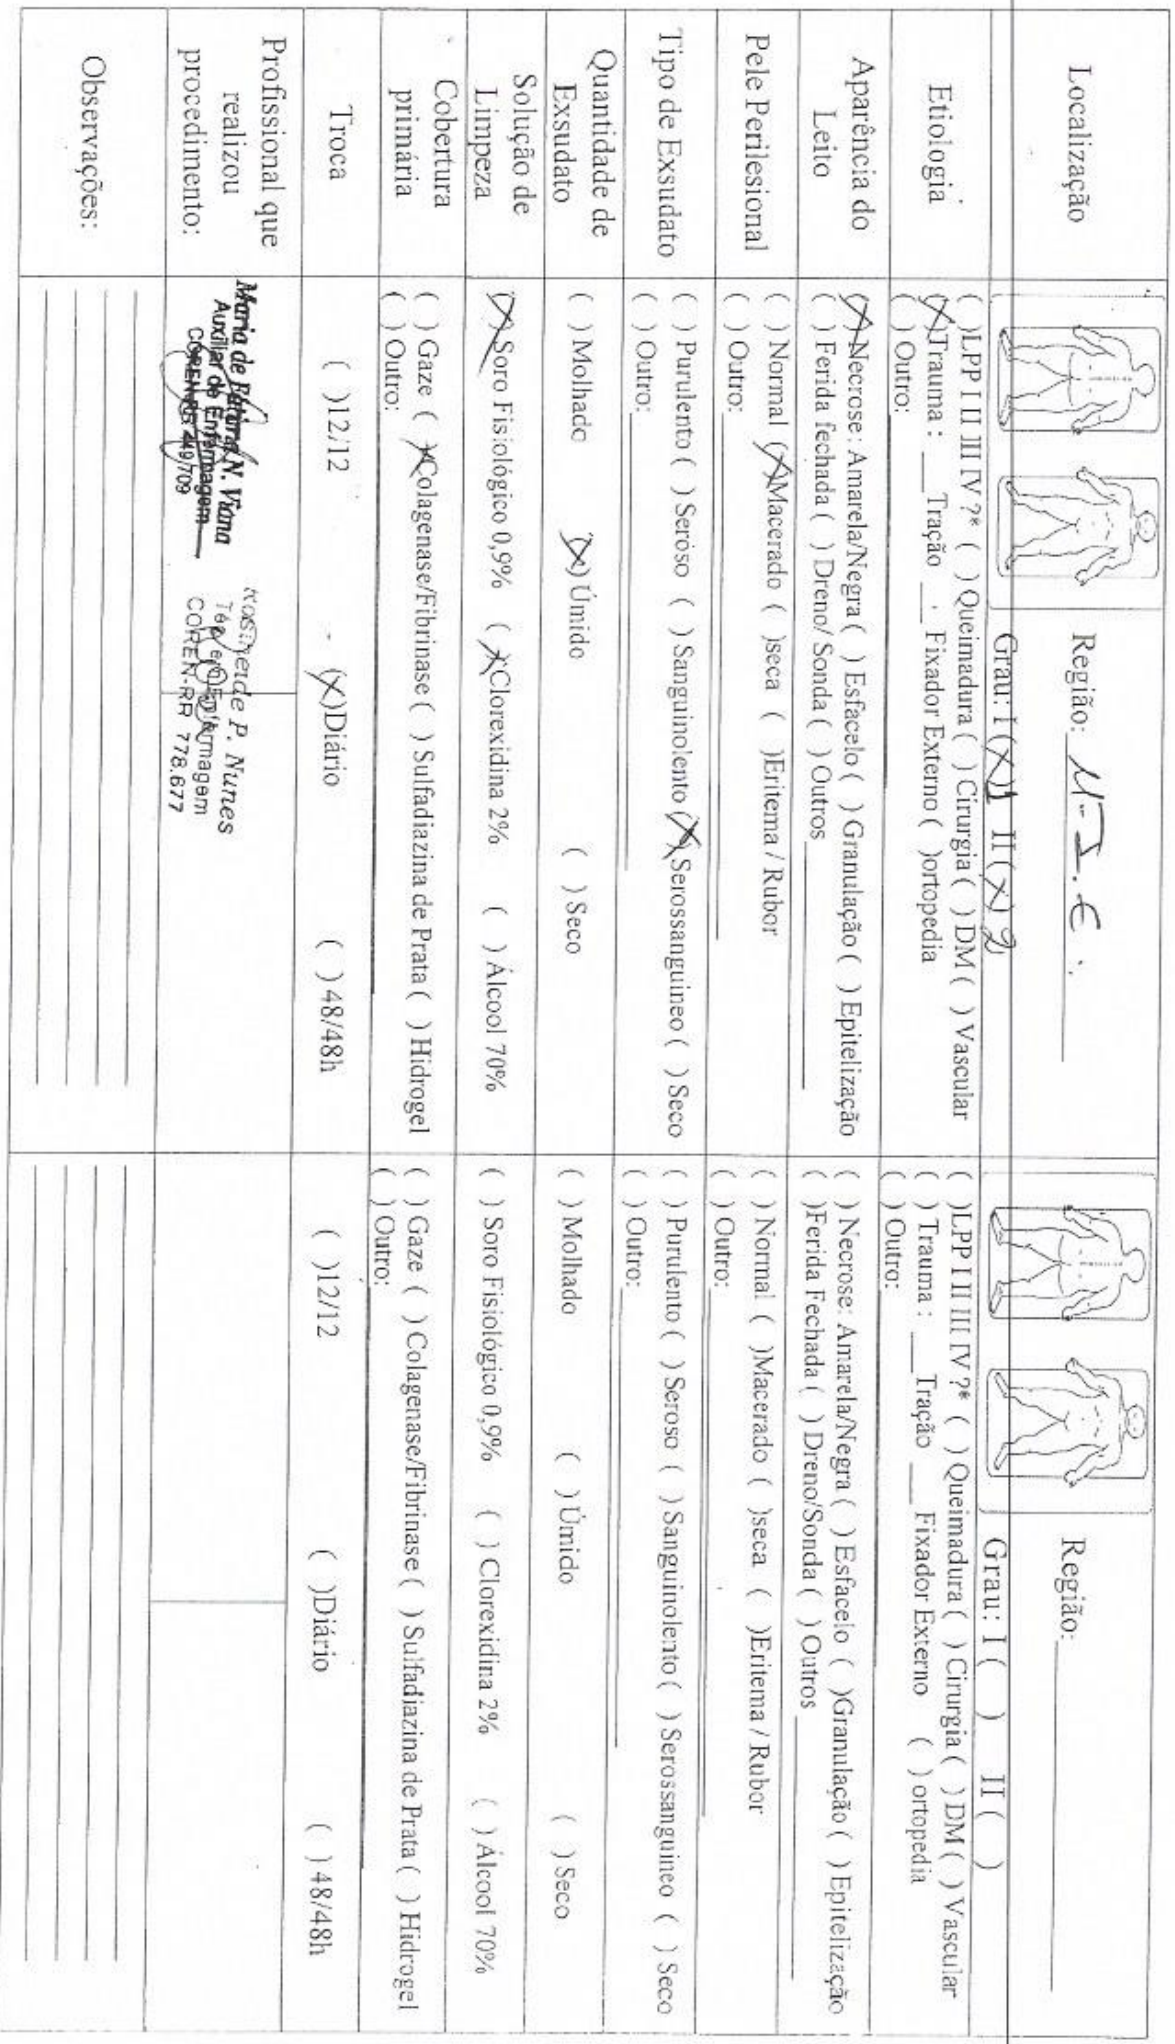 Localização
Região: M.I.E.
Grau: I (X) 1 II (X) 2
Região:
Grau: I ( ) II ( )
Etiologia
( )LPP I II III IV ?* ( )Queimadura ( ) Cirurgia ( ) DM ( ) Vascular
(X)Trauma : ___ Tração ___ Fixador Externo ( )ortopedia
( ) Outro:
( )LPP I II III IV ?* ( ) Queimadura ( ) Cirurgia ( ) DM ( ) Vascular
( ) Trauma : ___ Tração ___ Fixador Externo ( ) ortopedia
( ) Outro:
Aparência do
Leito
(X)Necrose: Amarela/Negra ( ) Esfacelo ( ) Granulação ( ) Epitelização
( ) Ferida fechada ( ) Dreno/ Sonda ( ) Outros
( ) Necrose: Amarela/Negra ( ) Esfacelo ( )Granulação ( ) Epitelização
( )Ferida Fechada ( ) Dreno/Sonda ( ) Outros
Pele Perilesional
( ) Normal (X)Macerado ( )seca ( )Eritema / Rubor
( ) Outro:
( ) Normal ( )Macerado ( )seca ( )Eritema / Rubor
( ) Outro:
Tipo de Exsudato
( ) Purulento ( ) Seroso ( ) Sanguinolento (X) Serossanguineo ( ) Seco
( ) Outro:
( ) Purulento ( ) Seroso ( )Sanguinolento ( ) Serossanguineo ( ) Seco
( ) Outro:
Quantidade de
Exsudato
( ) Molhado (X) Úmido ( ) Seco
( ) Molhado ( ) Úmido ( ) Seco
Solução de
Limpeza
(X) Soro Fisiológico 0,9% (X)Clorexidina 2% ( ) Álcool 70%
( ) Soro Fisiológico 0,9% ( ) Clorexidina 2% ( ) Álcool 70%
Cobertura
primária
( ) Gaze (X)Colagenase/Fibrinase ( ) Sulfadiazina de Prata ( ) Hidrogel
( ) Outro:
( ) Gaze ( ) Colagenase/Fibrinase ( ) Sulfadiazina de Prata ( ) Hidrogel
( ) Outro:
Troca
( )12/12 (X)Diário ( ) 48/48h
( )12/12 ( )Diário ( ) 48/48h
Profissional que
realizou
procedimento:
Maria de Fátima N. Viana
Auxiliar de Enfermagem
COREN-RR 449709
P. Nunes
Téc. em Enfermagem
COREN-RR 778.677
Observações: